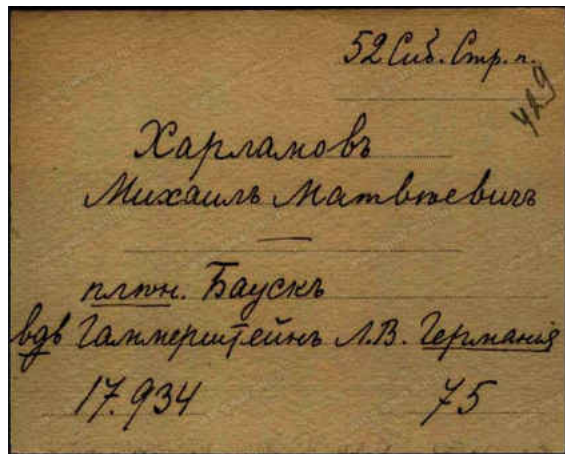 52 Сиб. Стр. п.
429
Харламовъ
Михаилъ Матвѣевичъ
плѣн. Баускъ
вдв Гаммерштейнъ Л.В. Германія
17.934 75